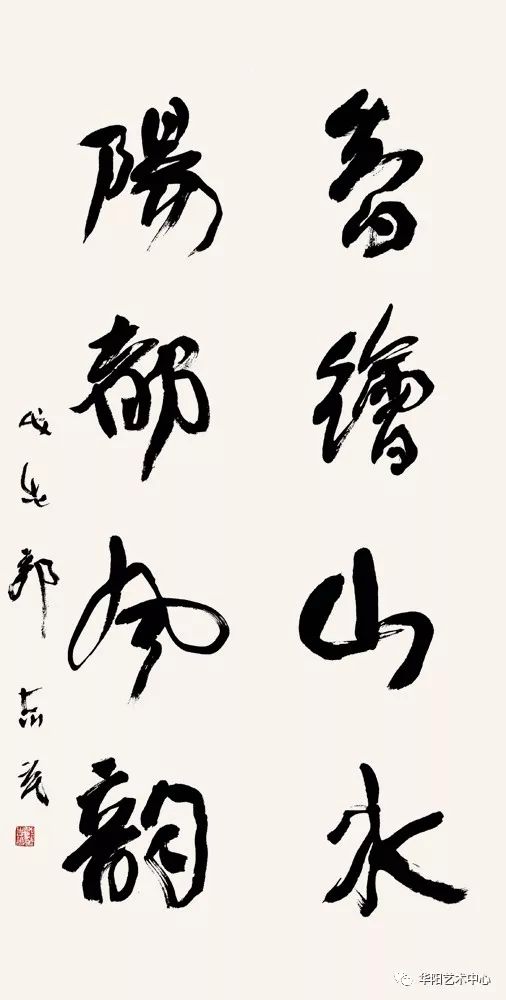 智繪山水
陽都風韵
戊戌郭志光
华阳艺术中心